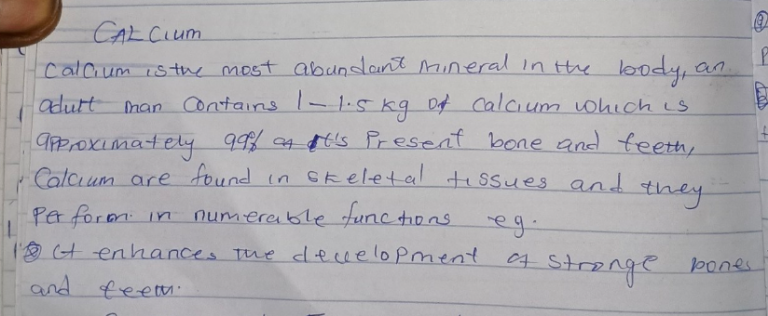 CALCium
Calcium is the most abundant mineral in the body, an
adult man contains 1-1.5 kg of calcium which is
approximately 99% of it's Present bone and teeth,
Calcium are found in skeletal tissues and they
Perform in numerable functions eg.
It enhances the development of stronge bones
and teeth.